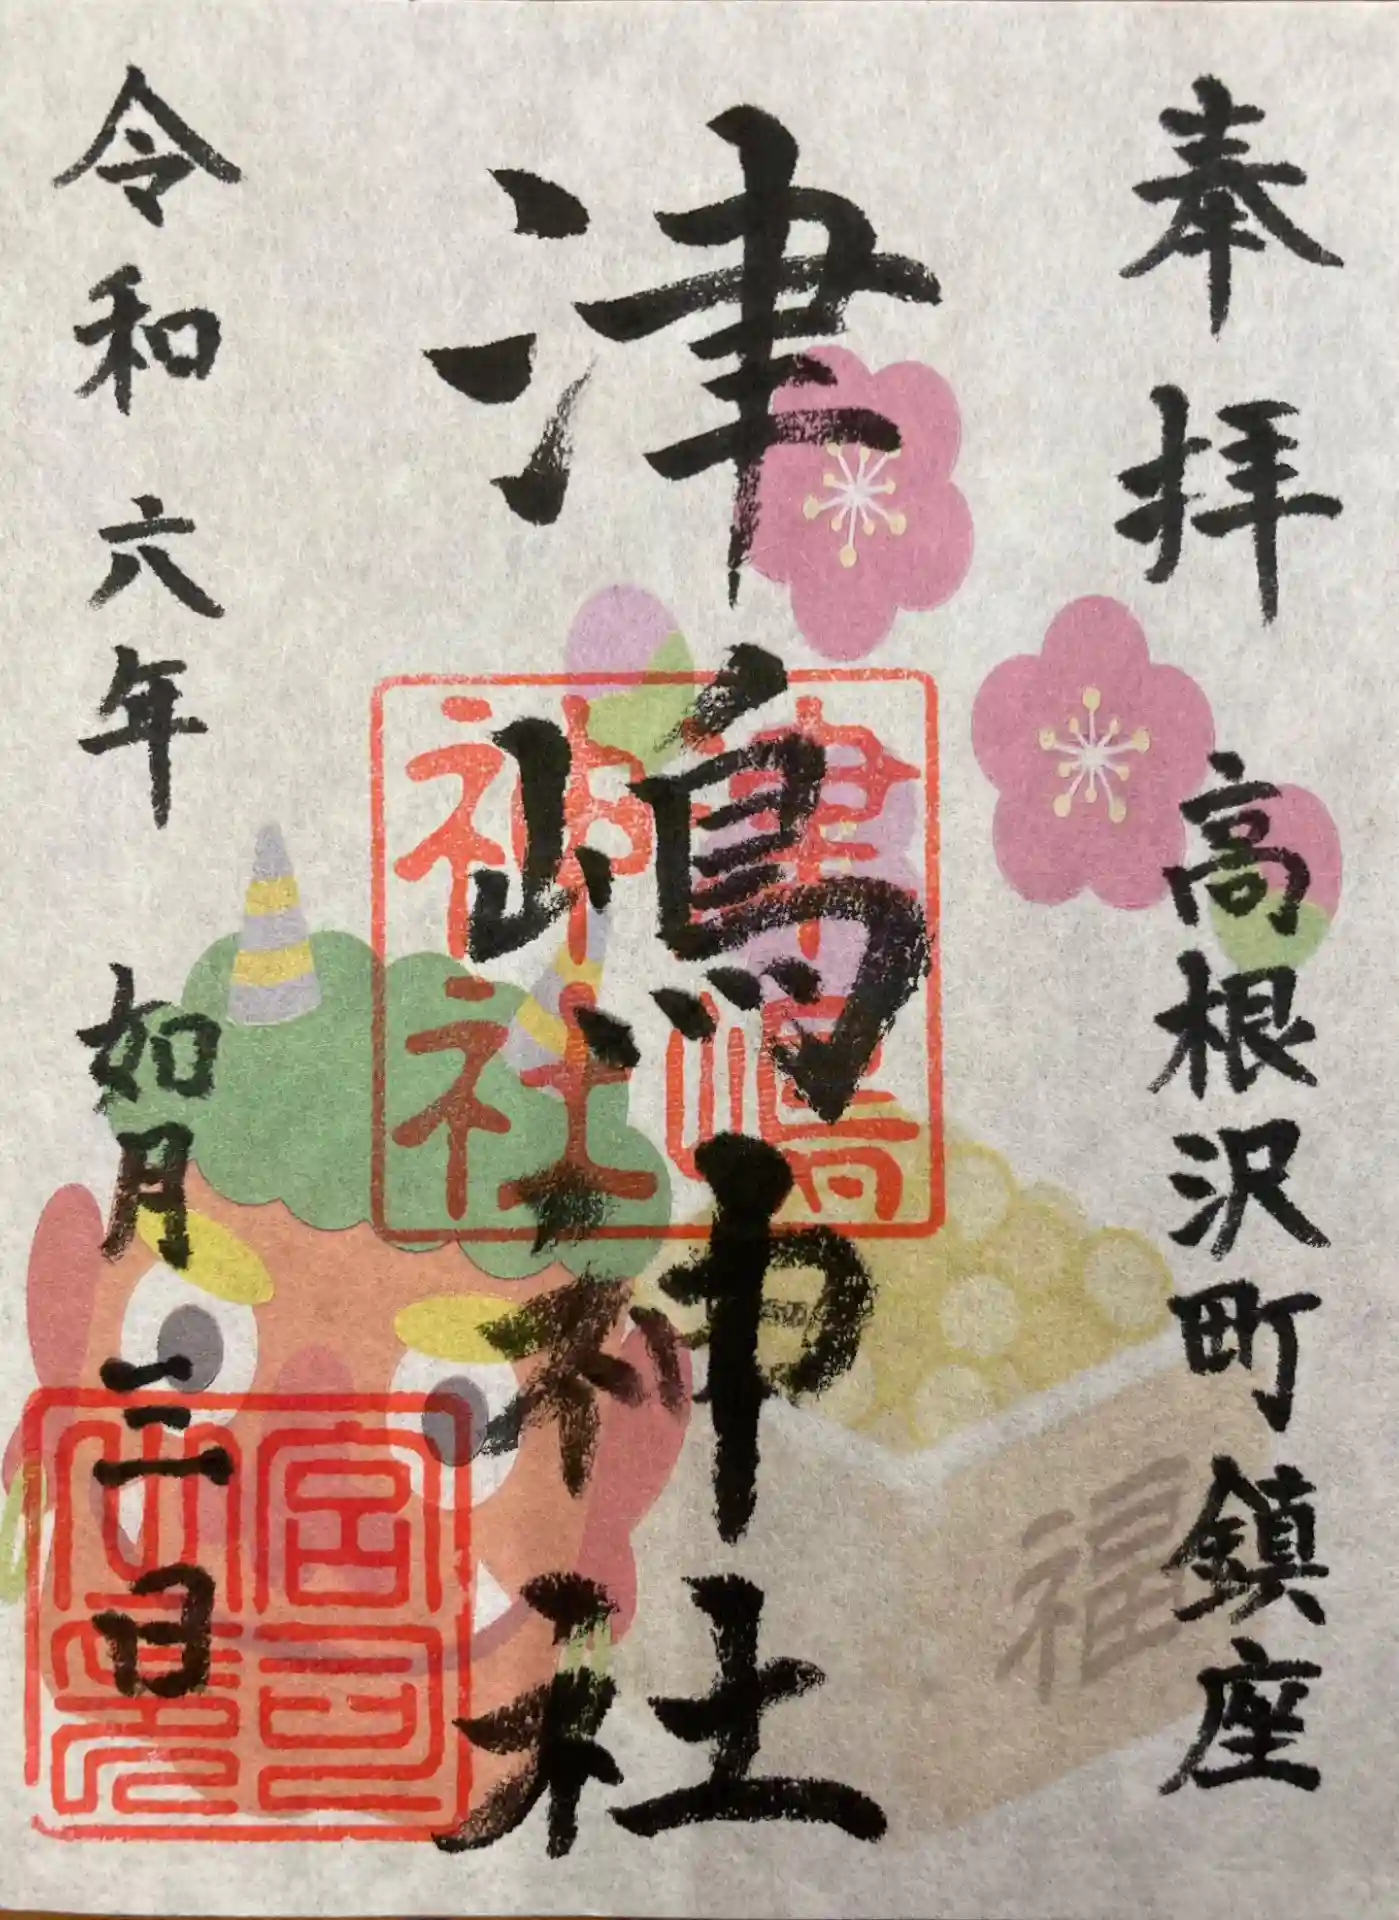 奉拝
高根沢町鎮座
津嶋神社
令和六年 如月 三日
津嶋
神社
宮司
之印
福